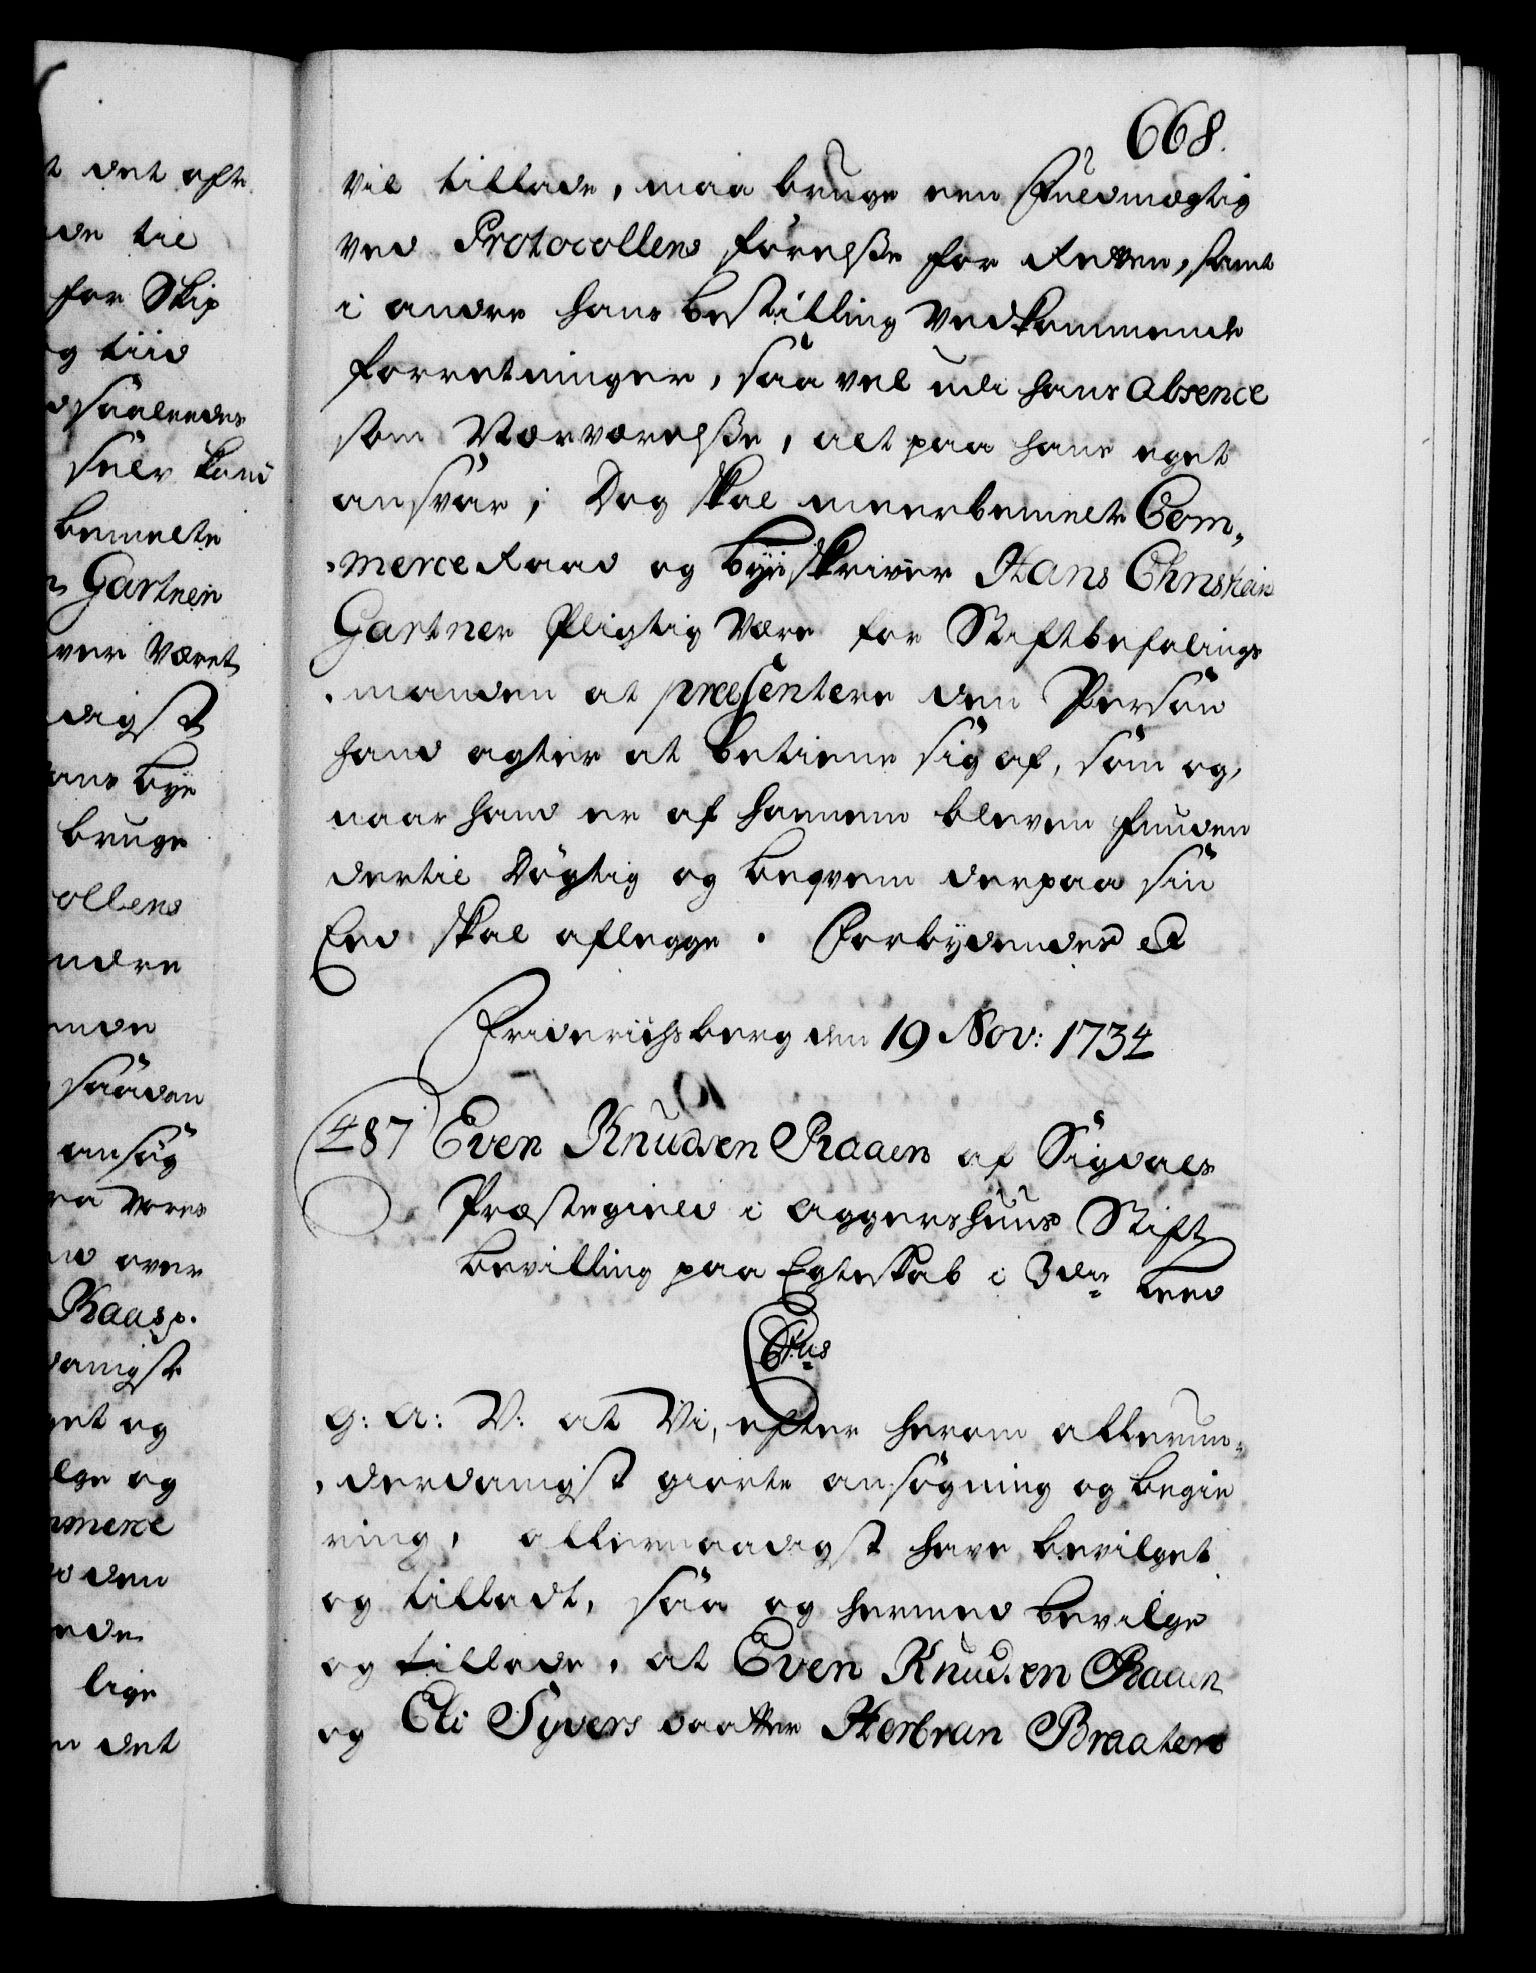 668.
vil tillade, maa bruge een Fuldmægtig
ved Protocollens førelsse for Retten, samt
i andre hans bestilling vedkommende
forretninger, saavel udi hans absence
som Nærværelsse, alt paa hans eget
ansvar; Dog skal meerbemelte Com,
merce Raad og byeskriver Hans Christian
Gartner Pligtig være for Stiftbefalings
manden at præsentere den Person
hand agter at betiene sig af, som og,
naar hand er af hannem bleven funden
dertil Døgtig og beqvem derpaa sin
Eed skal aflegge. Forbydendes &c
Friderichsberg den 19 Nov: 1734
487 Even Knudsen Raaen af Sigdals
Præstegield i Aggershuus Stift
bevilling paa Egteskab i 3die Leed
C 6tus
G: A: V: at Vi, efter herom allerun,
derdanigst giorte ansøgning og begie
ring, allernaadigst have bevilget
og tilladt, saa og hermed bevilge
og tillade, at Even Knudsen Raaen
og Eli Syvers daatter Herbran Braatens
t det efte
de til
for Skip
g tiid
dsaaleedes
selv kand
bemelte
n Gartnen
ver været
digst
ans bye
bruge
ollens
ndre
ende
saaden
ansøg
ra vores
d over
Raasp.
danigst
et og
lge og
merce
den
ede
lige
n det